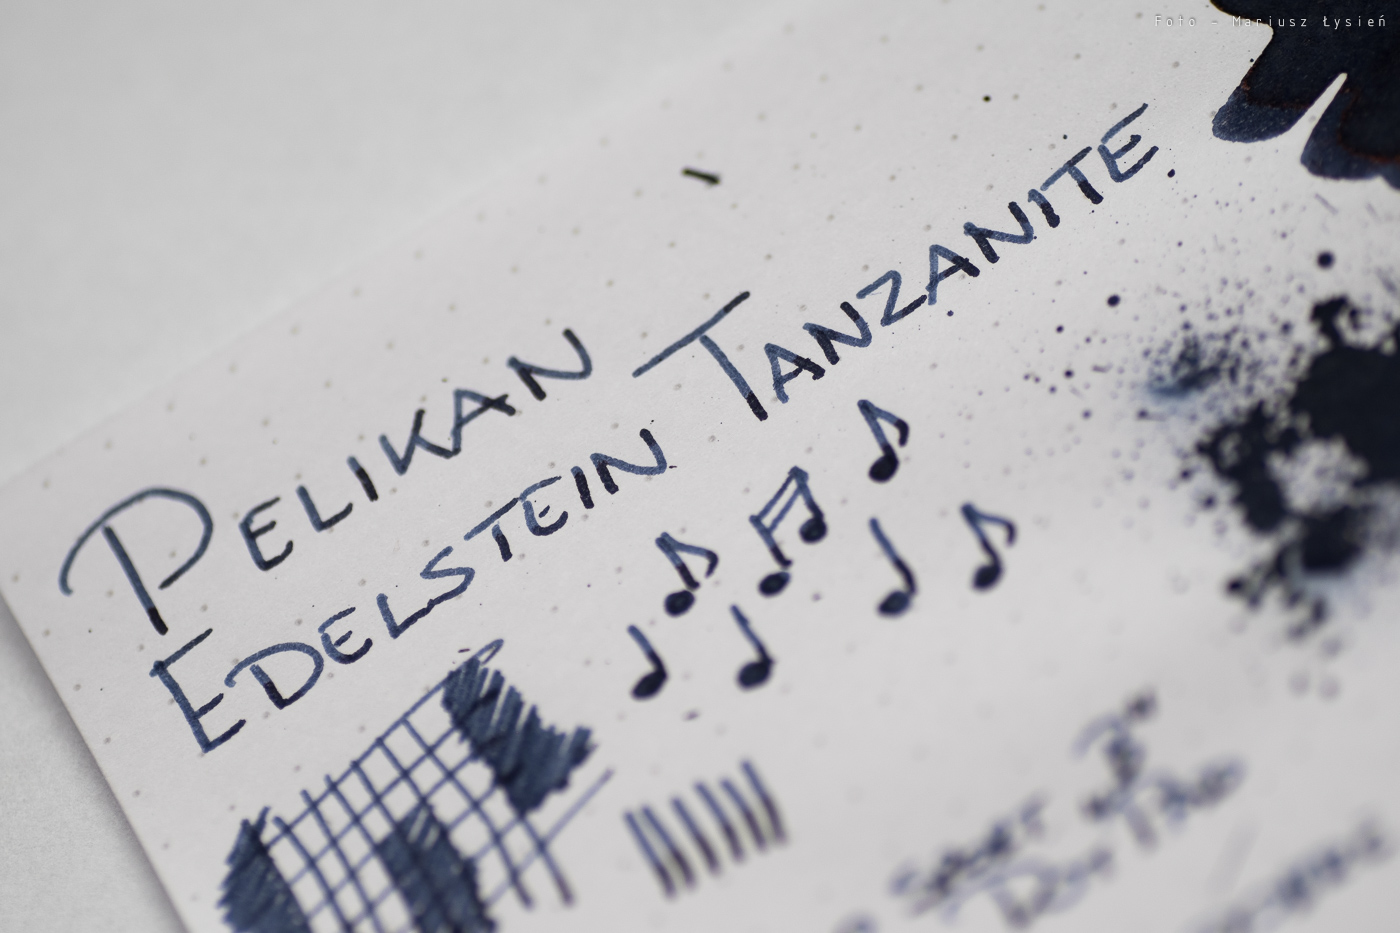 Foto - Mariusz Łysień
PELIKAN
EDELSTEIN TANZANITE